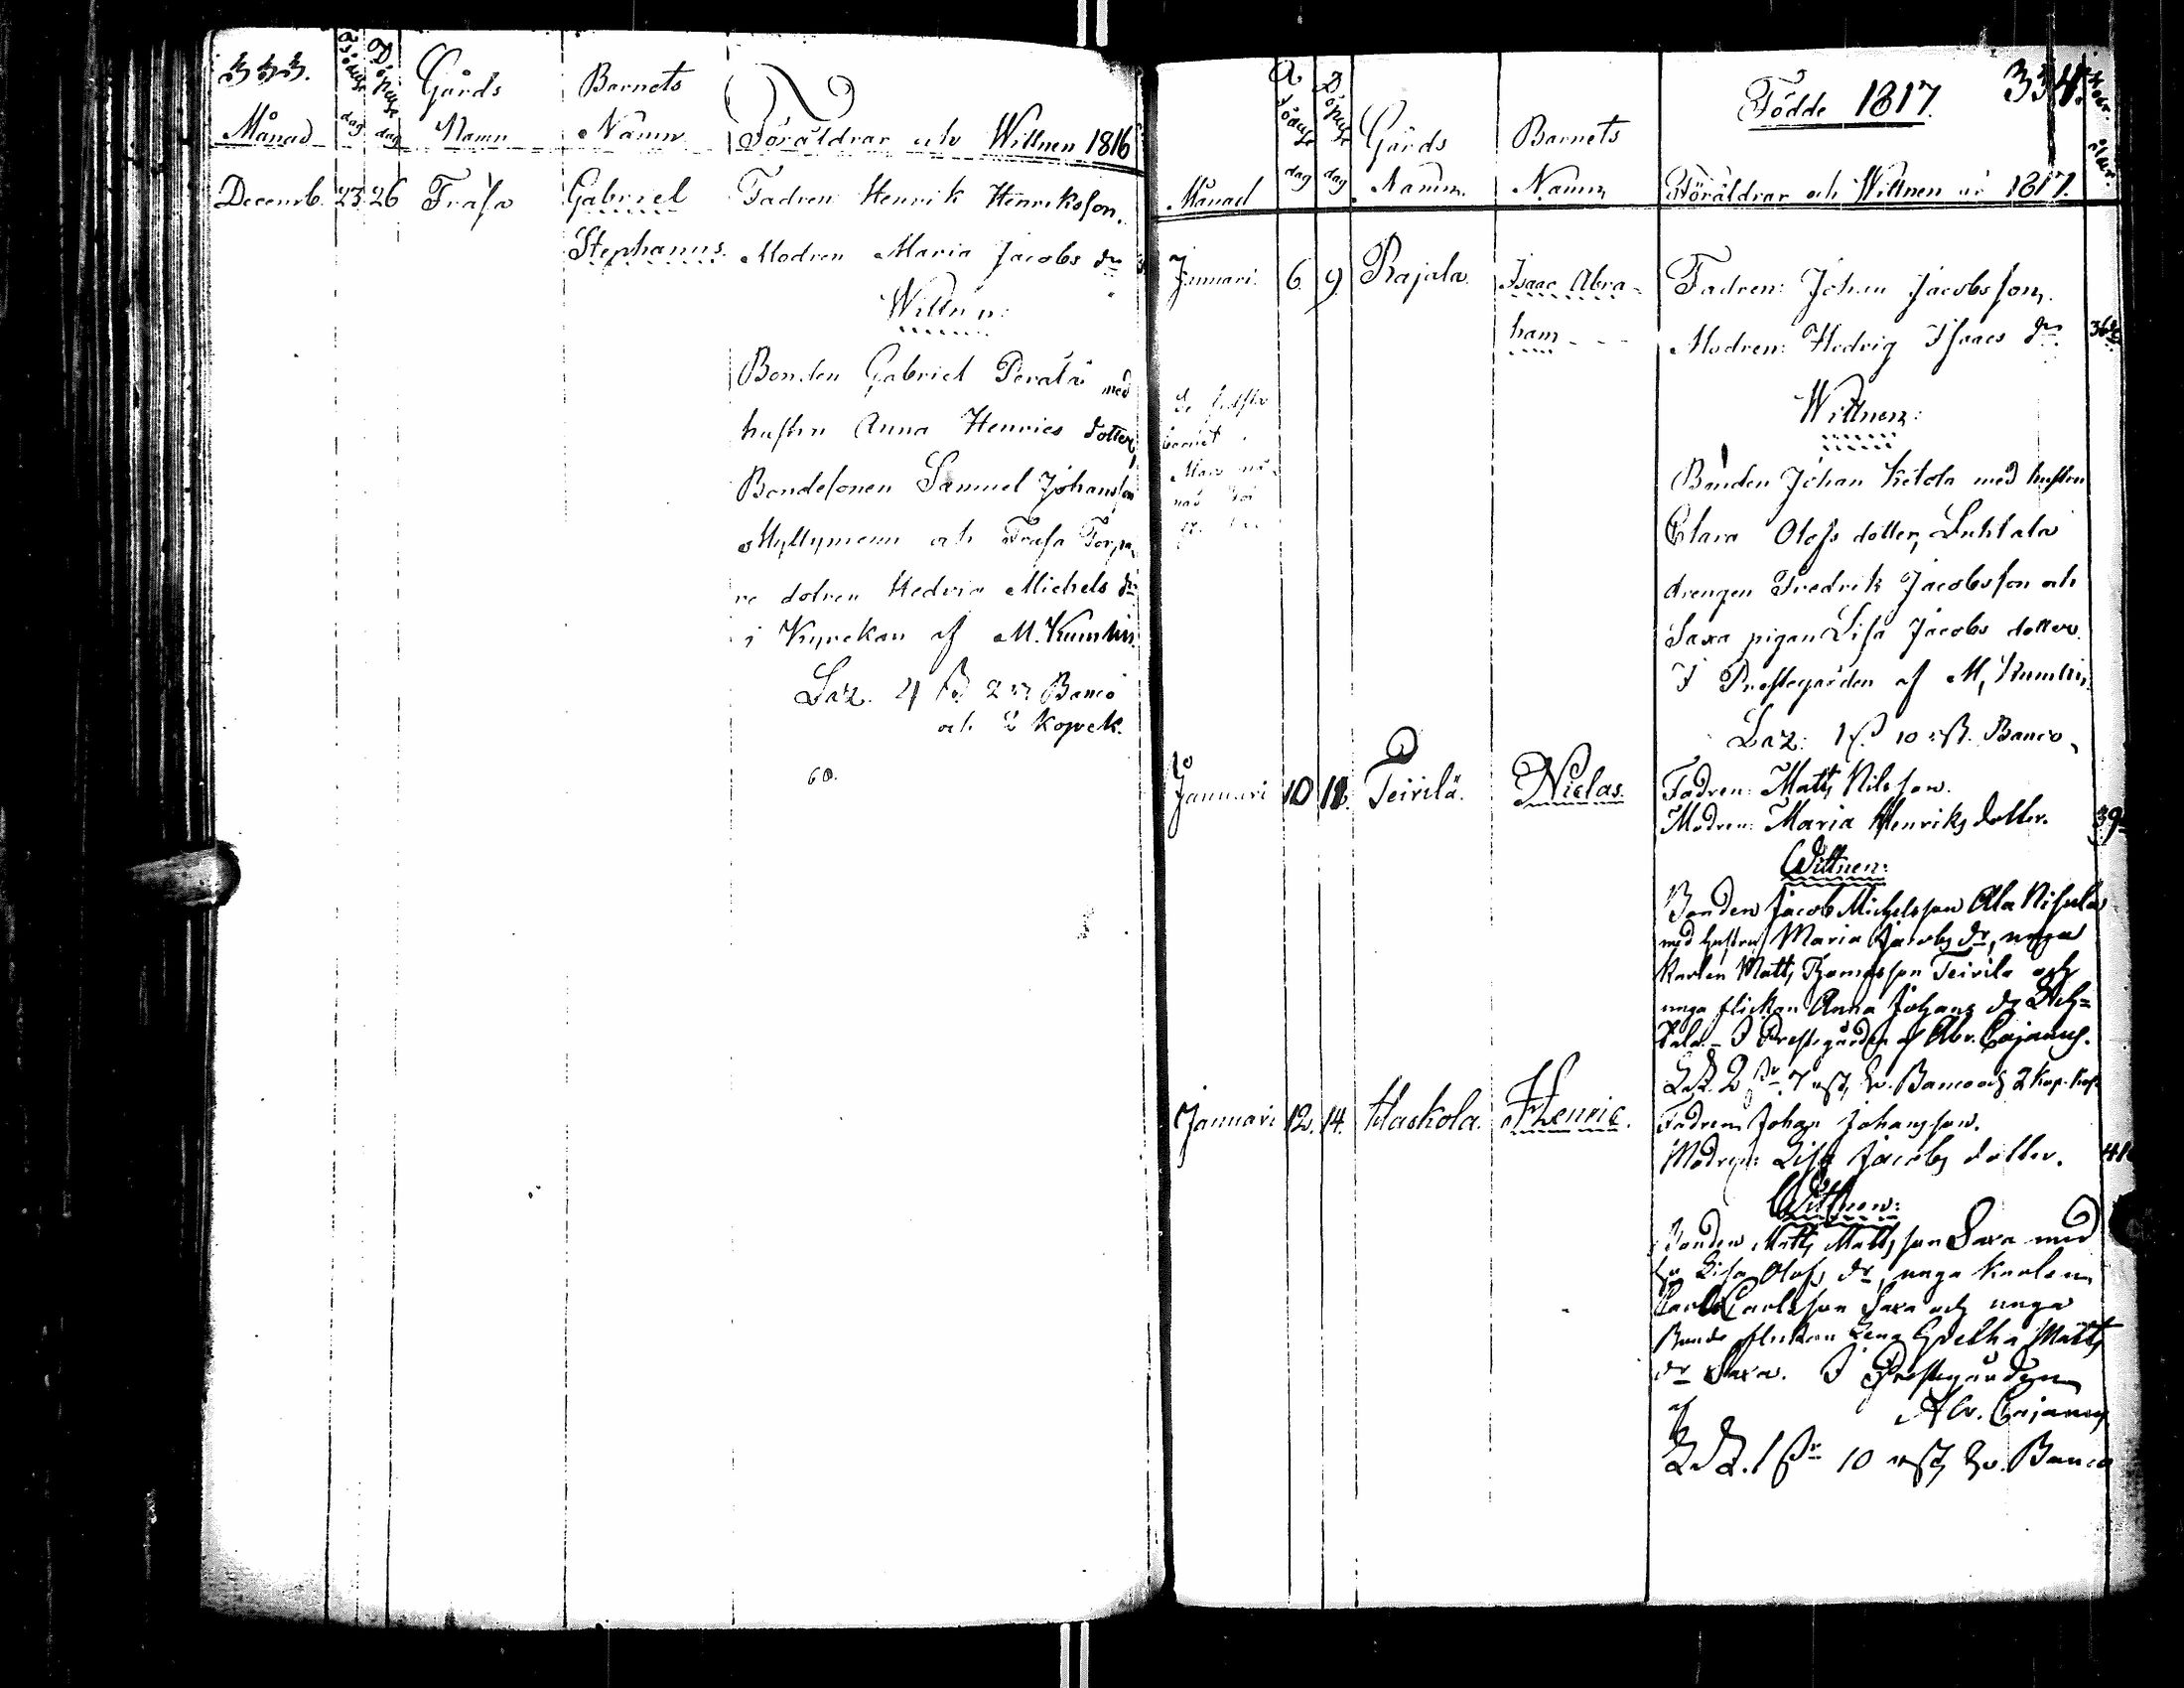 333.
Månad
Födelse dag
Döpelse dag
Gårds Namn
Barnets Namn
Föräldrar och Wittnen 1816
Decemb. 23. 26 Frasa Gabriel Fadren Henrik Henriksson.
Stephanus. Modren Maria Jacobs dr
Wittnen:
Bonden Gabriel Perälä med
hustru Anna Henrics dotter,
Bondesonen Samuel Johansson
Myllymenn och Frasa Torpa
re dotren Hedvig Michels dr
i Kyrckan af M. Kumlin.
Laz. 4 ß 2 rz Banco
och 2 kopek.
60.
Födde 1817. 334.
Månad
Födelse dag
Döpelse dag
Gårds Namn.
Barnets Namn
Föräldrar och Wittnen år 1817.
Modr. ålder.
Januari. 6. 9. Rajala Isaac Abra- Fadren: Johan Jacobsson.
ham - - - Modren: Hedvig Isaacs dr. 36
Wittnen:
Bonden Johan Ketola med hustru
Clara Olofs dotter, Luhtala
drengen Fredrik Jacobsson och
Saxa pigan Lisa Jacobs dotter.
I Prestegården af M, Kumlin.
Laz: 1 ß 10 rß. Banco,
Januari 10 12. Teirilä. Niclas. Fadren: Matts Nilsson.
Modren: Maria Henriks dotter. 39
Wittnen:
Bonden Jacob Michelsson Ala Nisula
med hustru Maria Jacobs dr, unga
Karlen Matts Thomasson Teirilä och
unga flickan Anna Johans dr
I Prestegården af Abr. Cajanus.
Banco och 2 kop.
Januari 12. 14. Haskola. Henric. Fadren Johan Johansson.
Modren: Lisa Jacobs dotter. 41
Wittnen:
Bonden Matts Mattsson Saxa med
hu Lisa Olofs dr, unga Karlen
Carl Carlsson Saxa och unga
Bonde flickan Lena Gretha Matts
dr Saxa. I Prestegården
af Abr. Cajanus
10 rß Banco